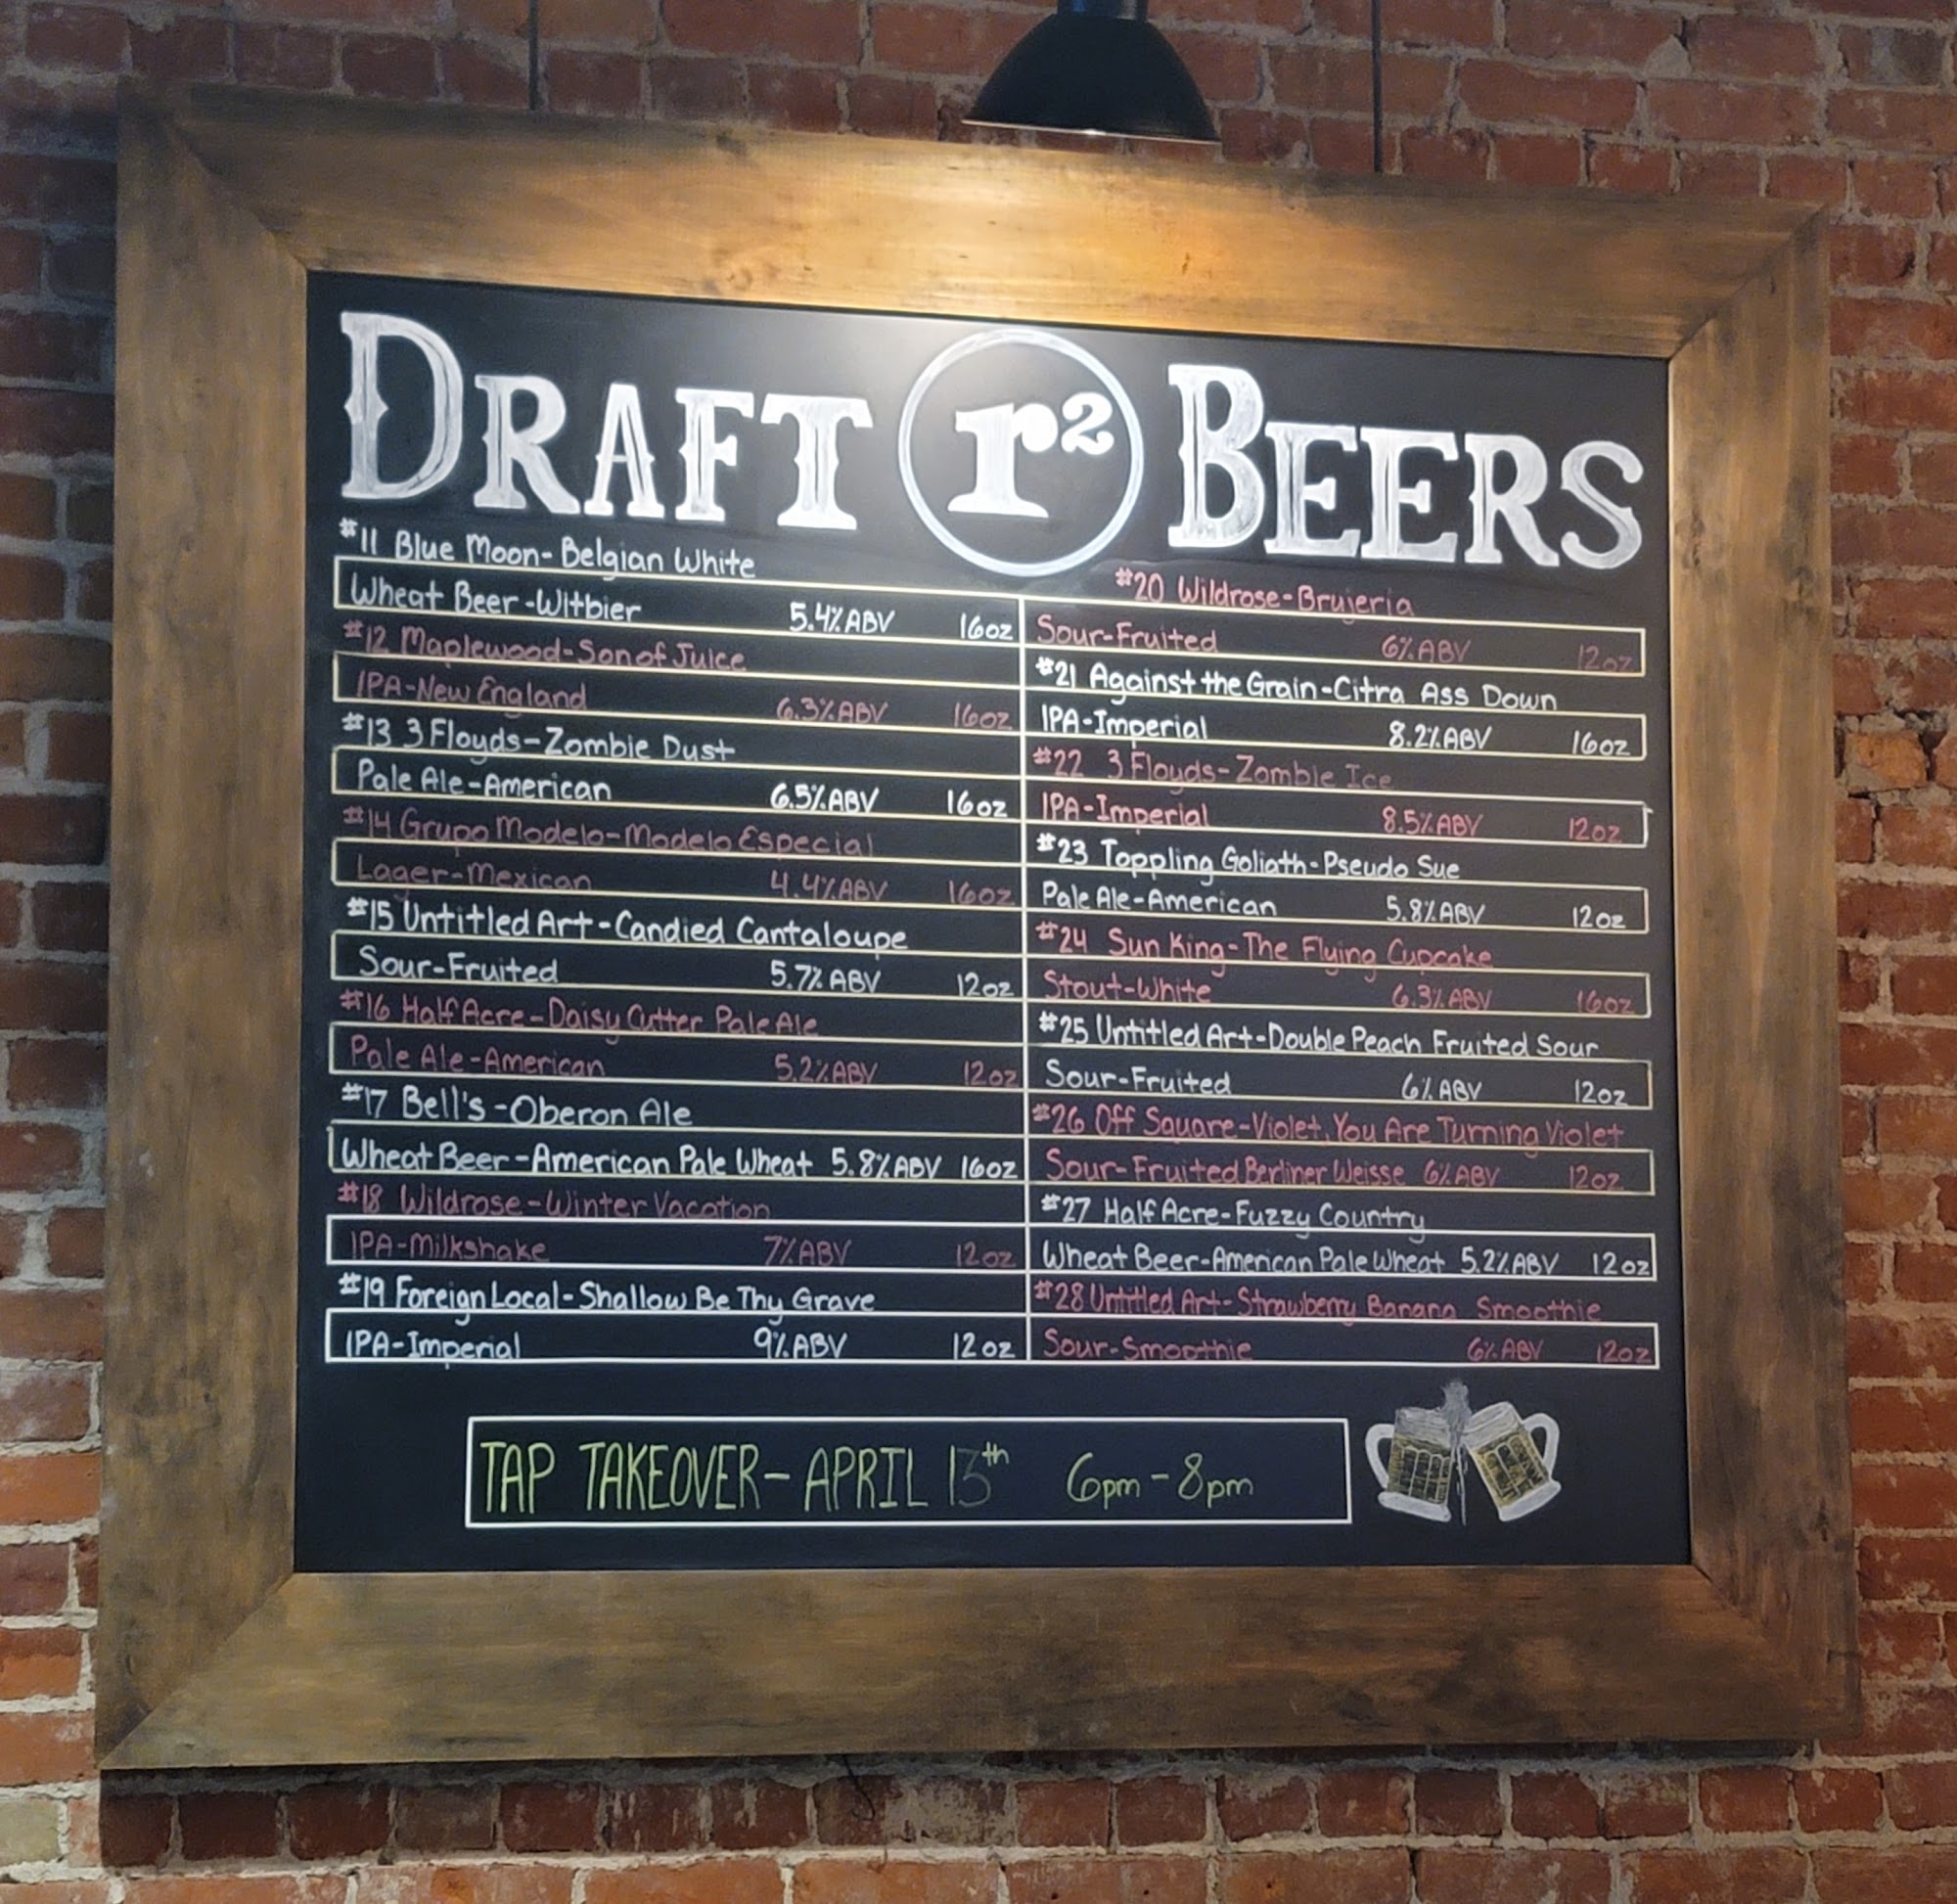 DRAFT r² BEERS
#11 Blue Moon-Belgian White
Wheat Beer-Witbier 5.4%ABV 16oz
#12 Maplewood-Son of Juice
IPA-New England 6.3%ABV 16oz
#13 3 Floyds-Zombie Dust
Pale Ale-American 6.5%ABV 16oz
#14 Grupo Modelo-Modelo Especial
Lager-Mexican 4.4%ABV 16oz
#15 Untitled Art-Candied Cantaloupe
Sour-Fruited 5.7%ABV 12oz
#16 Half Acre-Daisy Cutter Pale Ale
Pale Ale-American 5.2%ABV 12oz
#17 Bell's-Oberon Ale
Wheat Beer-American Pale Wheat 5.8%ABV 16oz
#18 Wildrose-Winter Vacation
IPA-Milkshake 7%ABV 12oz
#19 Foreign Local-Shallow Be Thy Grave
IPA-Imperial 9%ABV 12oz
#20 Wildrose-Brujeria
Sour-Fruited 6%ABV 12oz
#21 Against the Grain-Citra Ass Down
IPA-Imperial 8.2%ABV 16oz
#22 3 Floyds-Zombie Ice
IPA-Imperial 8.5%ABV 12oz
#23 Toppling Goliath-Pseudo Sue
Pale Ale-American 5.8%ABV 12oz
#24 Sun King-The Flying Cupcake
Stout-White 6.3%ABV 16oz
#25 Untitled Art-Double Peach Fruited Sour
Sour-Fruited 6%ABV 12oz
#26 Off Square-Violet, You Are Turning Violet
Sour-Fruited Berliner Weisse 6%ABV 12oz
#27 Half Acre-Fuzzy Country
Wheat Beer-American Pale Wheat 5.2%ABV 12oz
#28 Untitled Art-Strawberry Banana Smoothie
Sour-Smoothie 6%ABV 12oz
TAP TAKEOVER-APRIL 13th 6pm-8pm